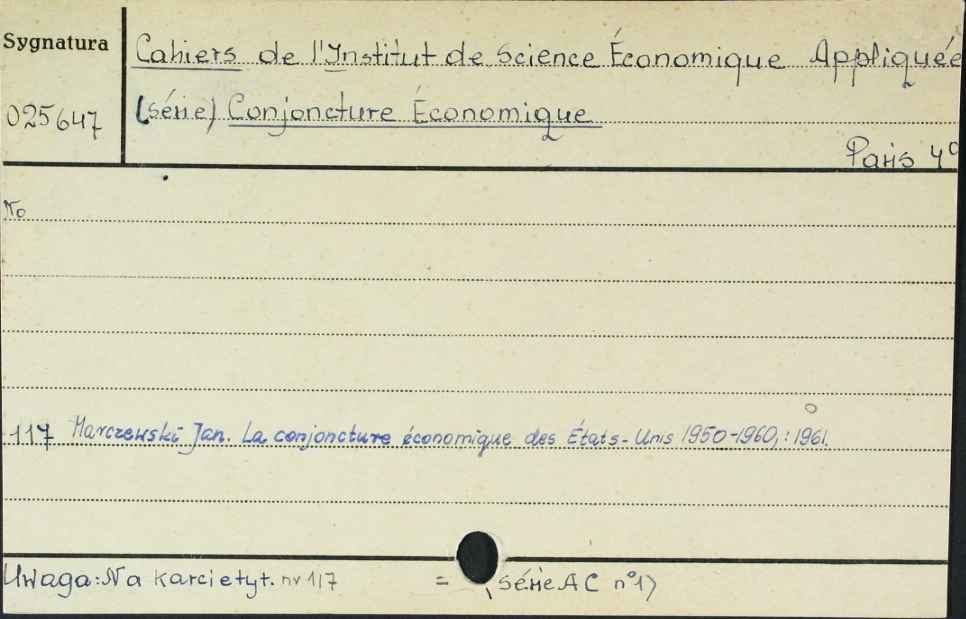 Sygnatura
Cahiers de l'Institut de Science Économique Appliquée
025647
(série) Conjoncture Économique
Paris 4°
No
117 Marczewski Jan. La conjoncture économique des États-Unis 1950-1960,: 1961.
Uwaga: Na karcie tyt. nr 117 = (série AC n°1)